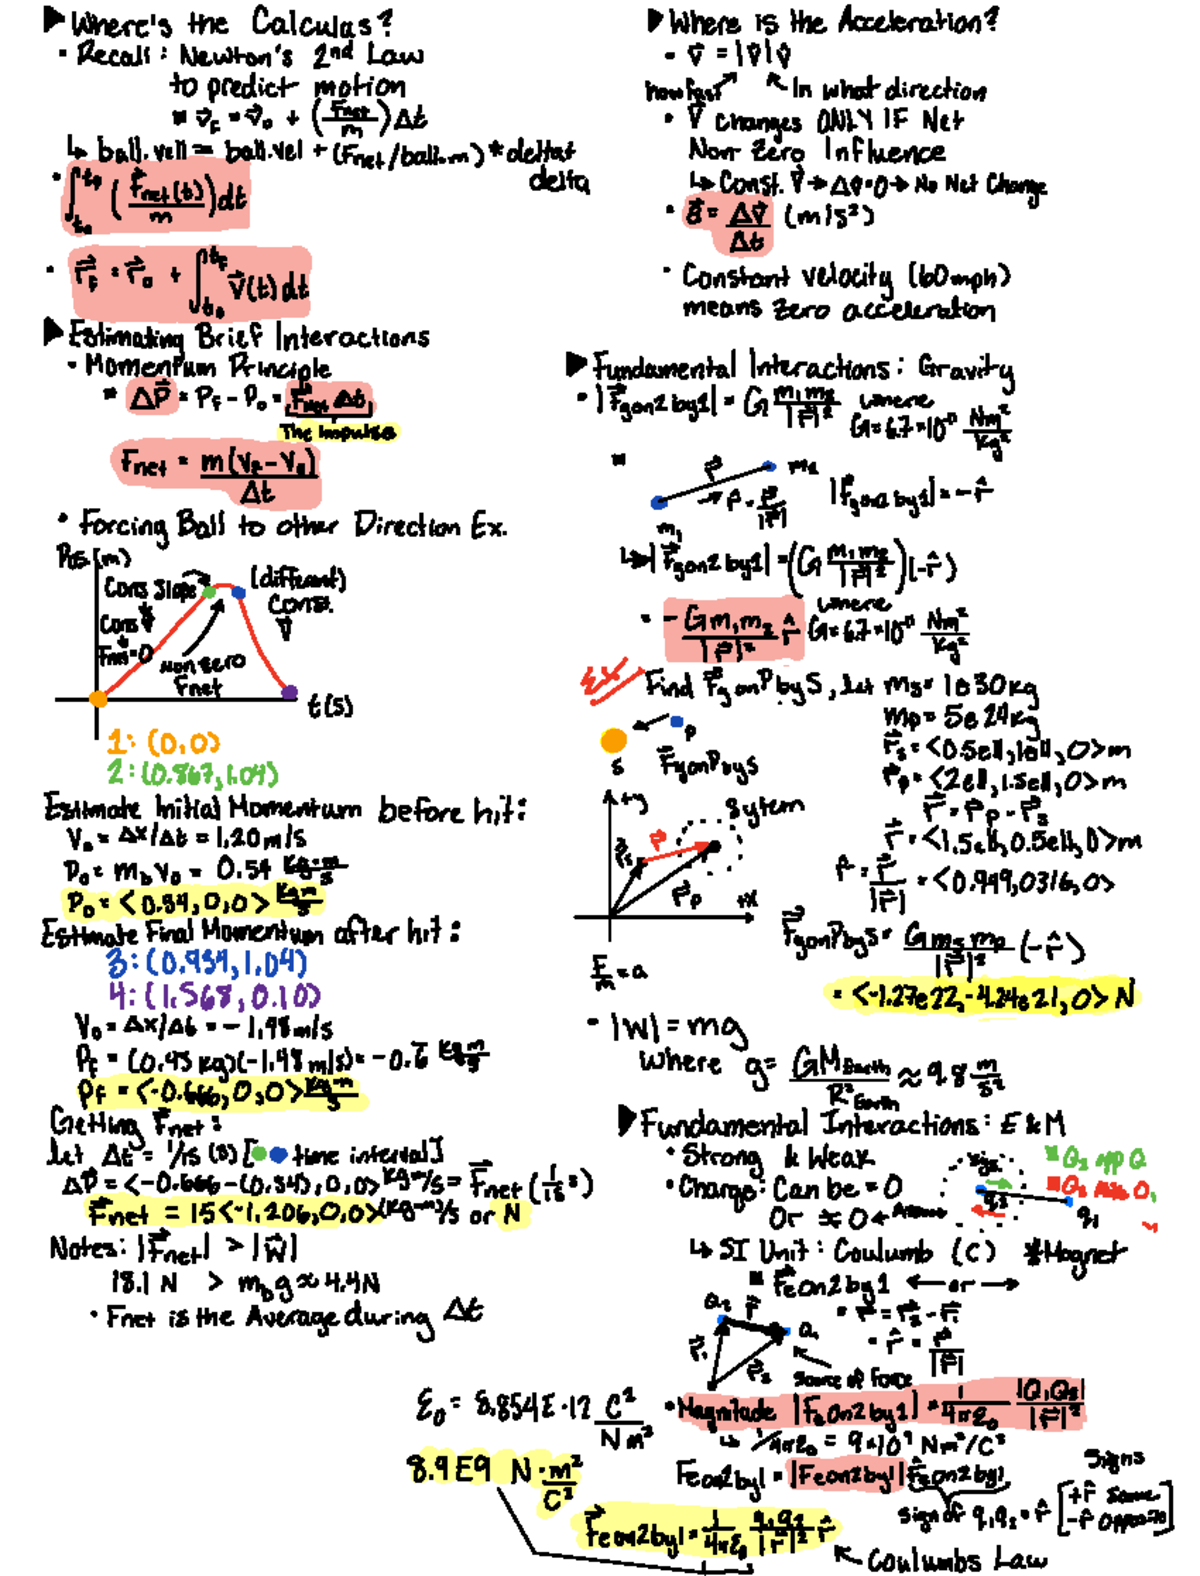 ▶ Where's the Calculas?
• Recall: Newton's 2nd Law
to predict motion
v⃗_F = v⃗_0 + (F_net/m)Δt
↳ ball.vel = ball.vel + (Fnet/ball.m) * deltat
delta
• ∫_{t_0}^{t_F} (F⃗net(t)/m) dt
• r⃗_F = r⃗_0 + ∫_{t_0}^{t_F} v⃗(t) dt
▶ Estimating Brief Interactions
• Momentum Principle
Δp⃗ = P_F - P_0 = F⃗net Δt
The Impulse
Fnet = m(V_F - V_0)/Δt
• Forcing Ball to other Direction Ex.
Pos (m)
Cons Slope
(different)
Const.
v⃗
Cons v⃗
Fnet=0
Non zero
Fnet
t(s)
1: (0,0)
2: (0.867, 1.04)
Estimate Initial Momentum before hit:
V_0 = Δx/Δt = 1.20 m/s
P_0 = m_b V_0 = 0.54 kg·m/s
P_0 = <0.54, 0, 0> kg m/s
Estimate Final Momentum after hit:
3: (0.934, 1.04)
4: (1.568, 0.10)
V_0 = Δx/Δt = -1.48 m/s
P_F = (0.45 kg)(-1.48 m/s) = -0.6̅ kg m/s
P_F = <-0.666, 0, 0> kg m/s
Getting F⃗net:
let Δt = 1/15 (s) [ time interval]
Δp⃗ = <-0.666 - (0.54), 0, 0> kg m/s = F⃗net (1/15 s)
F⃗net = 15<-1.206, 0, 0> (kg m)/s or N
Notes: |F⃗net| > |W⃗|
18.1 N > m_b g ≈ 4.4N
• Fnet is the Average during Δt
ε_0 = 8.854E-12 C²/Nm²
8.9 E9 N·m²/C²
▶ Where is the Acceleration?
- v⃗ = |v⃗| v̂
how fast In what direction
• v⃗ changes ONLY IF Net
Non-Zero Influence
↳ Const. v⃗ → Δv=0 → No Net Change
• a⃗ = Δv⃗/Δt (m/s²)
• Constant velocity (60mph)
means zero acceleration
▶ Fundamental Interactions: Gravity
• |F⃗g on 2 by 1| = G m_1 m_2/|r⃗|² where
G = 6.7×10⁻¹¹ Nm²/kg²
r⃗ m_2
m_1 r̂ = r⃗/|r⃗| |F̂g on 2 by 1| = -r̂
↳ |F⃗g on 2 by 1| = (G m_1 m_2/|r⃗|²)(-r̂)
= -G m_1 m_2/|r⃗|² r̂ where G = 6.7×10⁻¹¹ Nm²/kg²
Ex Find F⃗g on P by S, let m_s = 1e30 kg
m_p = 5e24 kg
r⃗_s = <0.5e11, 1e11, 0> m
r⃗_p = <2e11, 1.5e11, 0> m
r⃗ = r⃗_p - r⃗_s
r⃗ = <1.5e11, 0.5e11, 0> m
r̂ = r⃗/|r⃗| = <0.949, 0.316, 0>
S P F⃗g on P by S
+y System
r⃗_s r⃗ r⃗_p +x
F/m = a
F⃗g on P by S = G m_s m_p/|r⃗|² (-r̂)
= <-1.27e22, -4.24e21, 0> N
• |W| = mg
where g = GM_Earth/R²_Earth ≈ 9.8 m/s²
▶ Fundamental Interactions: E & M
• Strong & Weak
• Charge: Can be = 0
Or ≈ 0
q_2 q_1
↳ SI Unit: Coulumb (C) *Magnet
F⃗e on 2 by 1 ← or →
• r⃗ = r⃗_2 - r⃗_1
• r̂ = r⃗/|r⃗|
Q_2 r⃗ Q_1
r⃗_1 r⃗_2
Source of Force
• Magnitude |Fe on 2 by 1| = 1/4πε_0 |Q_1Q_2|/|r⃗|²
↳ 1/4πε_0 = 9×10⁹ Nm²/C²
Fe on 2 by 1 = |Fe on 2 by 1| F̂e on 2 by 1
Sign of q_1q_2 = r̂
Signs
[+r̂ Same
-r̂ Opposite]
F⃗e on 2 by 1 = 1/4πε_0 q_1q_2/|r⃗|² r̂
Coulumbs Law